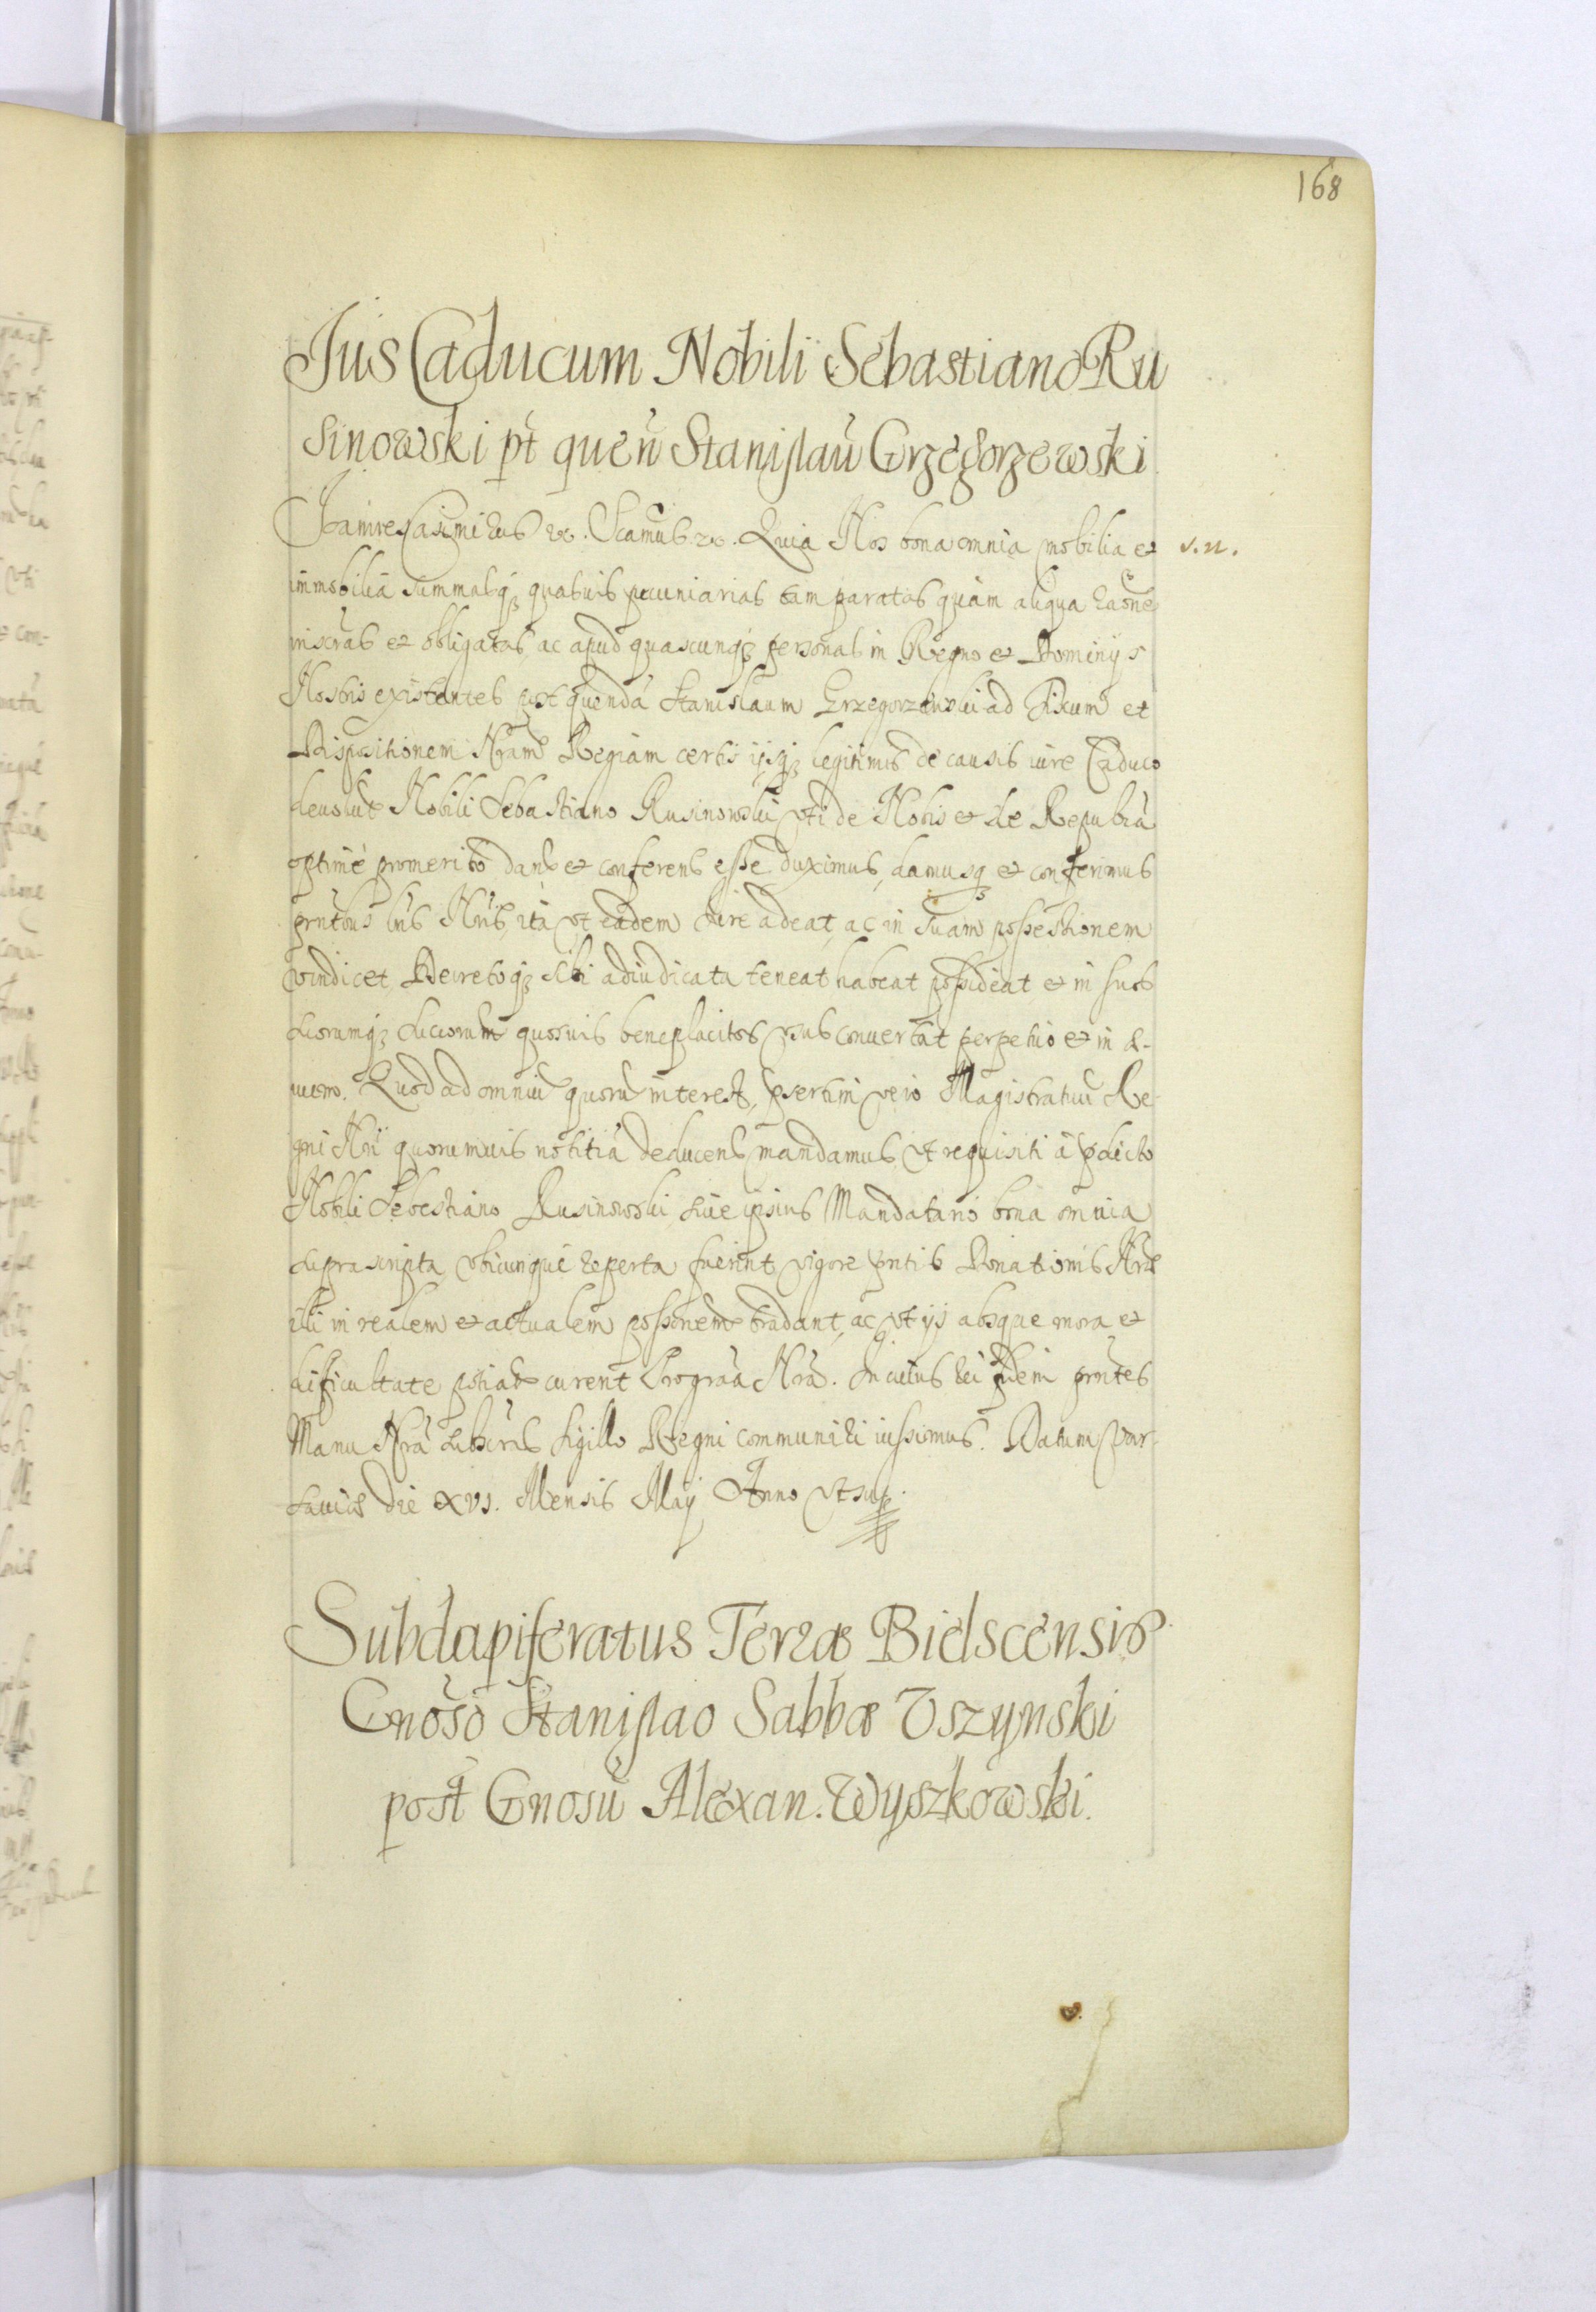 168
Jus Caducum Nobili Sebastiano Ru
sinowski pt quen Stanislau Grzegorzewski
Joannes Casimirus etc. Scamus etc. Quia Nos bona omnia mobilia et
s. n.
immobilia summasq quasuis pecuniarias tam paratas quam aliqua raone
inscras et obligatas, ac apud quascunq personas in Regno et Dominijs
Nostris existentes post quenda Stanislaum Grzegorzewski ad Fiscum et
Dispositionem Nram Regiam certis ijsq legitimis de causis iure Caduco
deuolut Nobili Sebastiano Rusinowski vti de Nobis et de Republica
optimè promerito dand et conferend esse duximus, damusq et conferimus
prntbus lris Nris, ità vt eadem iure adeat, ac in suam possessionem
vindicet, Decretoq sibi adiudicata teneat habeat possideat et in suos
suorumq successorum quosuis beneplacitos vsus conuertat perpetuò et in æ-
uum. Quod ad omniu quoru interest, psertim vero Magistratuu Re-
gni Nri quorumuis notitiã deducens mandamus, vt requisiti à pdicto
Nobili Sebestiano Rusinowski, siue ipsius Mandatario bona omnia
suprascripta, vbicunque reperta fuerint, vigore pntis Donationis Nræ
illi in realem et actualem possonem tradant, ac vt ijs absque mora et
dificultate potiat curent Pro graa Nra. In cuius rei fidem prntes
Manu Nra subscras Sigillo Regni communiri iussimus. Datum Var-
sauiæ Die XVI. Mensis Maij Anno vt sup.
Subdapiferatus Terræ Bielscensis
Gnoso Stanislao Sabbæ Vszynski
post Gnosu Alexan. Wyszkowski.